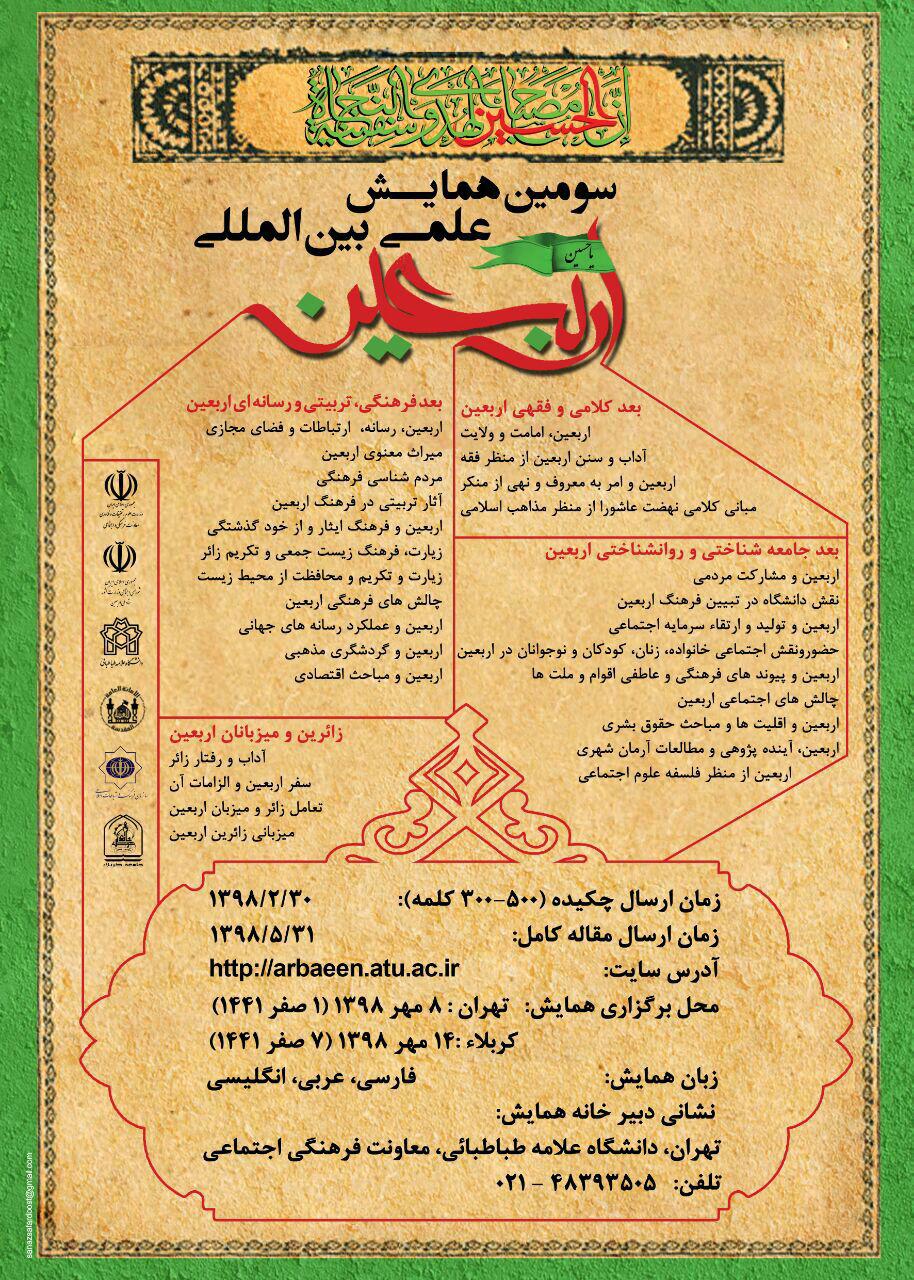 إن الحسین مصباح الهدی و سفینة النجاة
سومین همایش
علمی بین‌المللی
یا حسین
اربعین
بعد کلامی و فقهی اربعین
اربعین، امامت و ولایت
آداب و سنن اربعین از منظر فقه
اربعین و امر به معروف و نهی از منکر
مبانی کلامی نهضت عاشورا از منظر مذاهب اسلامی
بعد جامعه شناختی و روانشناختی اربعین
اربعین و مشارکت مردمی
نقش دانشگاه در تبیین فرهنگ اربعین
اربعین و تولید و ارتقاء سرمایه اجتماعی
حضورونقش اجتماعی خانواده، زنان، کودکان و نوجوانان در اربعین
اربعین و پیوند های فرهنگی و عاطفی اقوام و ملت ها
چالش های اجتماعی اربعین
اربعین و اقلیت ها و مباحث حقوق بشری
اربعین، آینده پژوهی و مطالعات آرمان شهری
اربعین از منظر فلسفه علوم اجتماعی
بعدفرهنگی، تربیتی و رسانه ای اربعین
اربعین، رسانه، ارتباطات و فضای مجازی
میراث معنوی اربعین
مردم شناسی فرهنگی
آثار تربیتی در فرهنگ اربعین
اربعین و فرهنگ ایثار و از خود گذشتگی
زیارت، فرهنگ زیست جمعی و تکریم زائر
زیارت و تکریم و محافظت از محیط زیست
چالش های فرهنگی اربعین
اربعین و عملکرد رسانه های جهانی
اربعین و گردشگری مذهبی
اربعین و مباحث اقتصادی
زائرین و میزبانان اربعین
آداب و رفتار زائر
سفر اربعین و الزامات آن
تعامل زائر و میزبان اربعین
میزبانی زائرین اربعین
جمهوری اسلامی ایران
جمهوری اسلامی ایران
دانشگاه علامه طباطبائی
زمان ارسال چکیده (۵۰۰-۳۰۰ کلمه): ۱۳۹۸/۲/۳۰
زمان ارسال مقاله کامل: ۱۳۹۸/۵/۳۱
آدرس سایت: http://arbaeen.atu.ac.ir
محل برگزاری همایش: تهران : ۸ مهر ۱۳۹۸ (۱ صفر ۱۴۴۱)
کربلاء :۱۴ مهر ۱۳۹۸ (۷ صفر ۱۴۴۱)
زبان همایش: فارسی، عربی، انگلیسی
نشانی دبیر خانه همایش:
تهران، دانشگاه علامه طباطبائی، معاونت فرهنگی اجتماعی
تلفن: ۴۸۳۹۳۵۰۵ – ۰۲۱